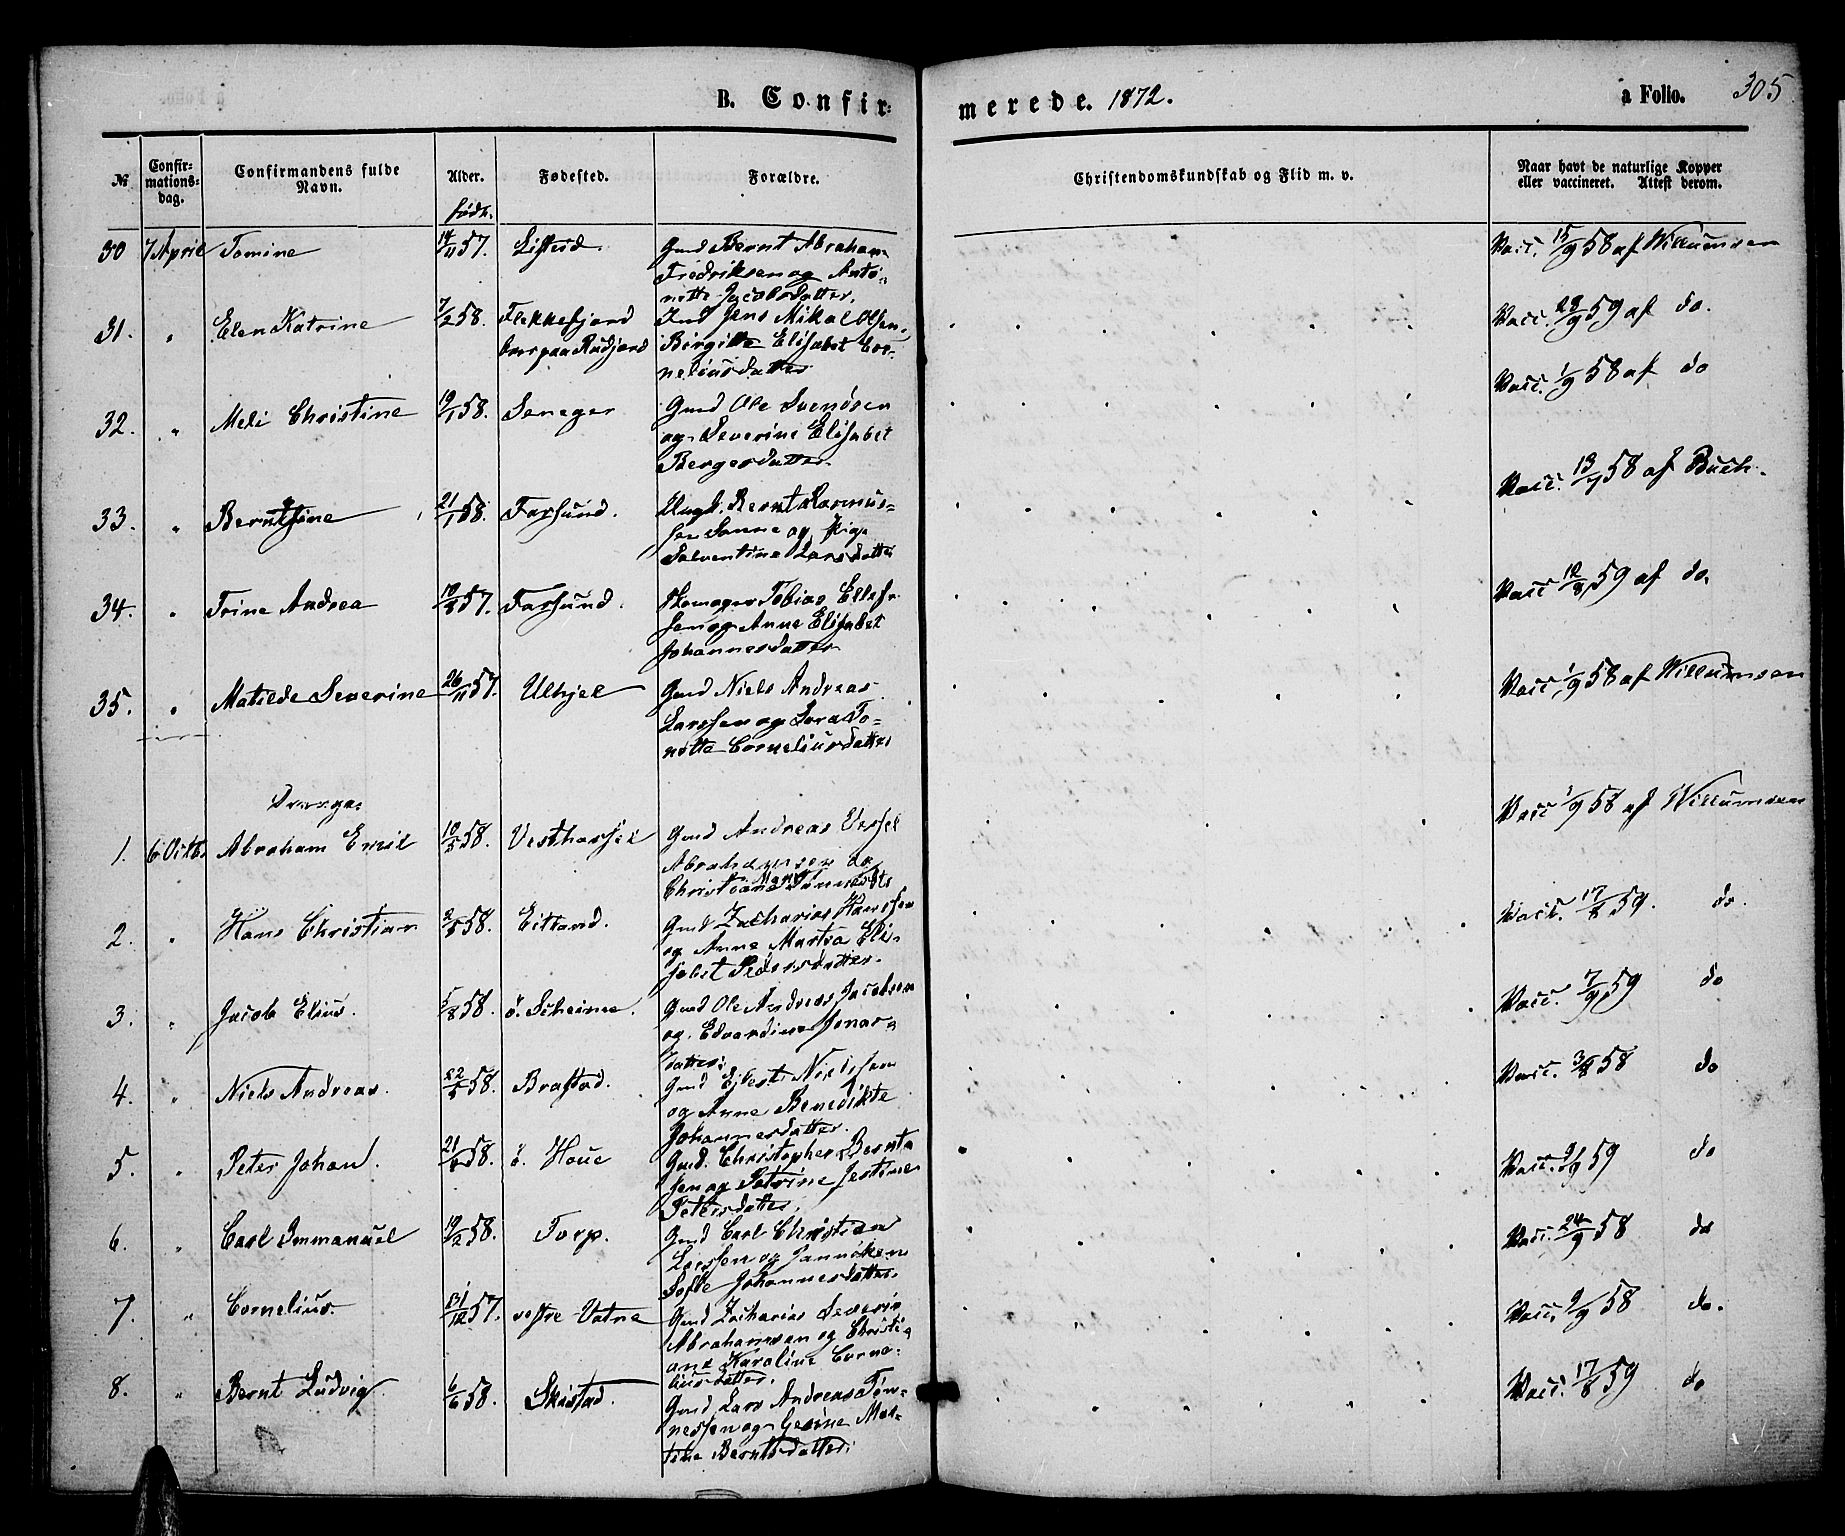 B. Confir-
merede. 1872.
a Folio. 305
№
Confir-
mations-
dag.
Confirmandens fulde
Navn.
Alder.
Fødested.
Forældre.
Christendomskundskab og Flid m. v.
Naar havt de naturlige Kopper
eller vaccineret. Attest derom.
født.
30 7 April Tomine 14/11 57. Gmd Bernt Abraham
Fredriksen og Anto-
nette Jacobsdatter. Vacc. 15/9 58 af Willumsen
31. " Elen Katrine 7/2 58. Flekkefjord Ind Jens Mikal Olsen,
Birgitte Elisabet Cor-
neliusdatter Vacc. 29/9 59 af do.
32. " Meli Christine 19/1 58. Gmd Ole Svendsen
og Severine Elisabet
Bergersdatter Vacc. 1/9 58 af do
33. " Berntsine 21/1 58. Farsund. Ungk. Bernt Rasmus-
sen og Pige
Salventine Larsdatter Vacc. 13/7 58 af Buch.
34. " Trine Andrea 10/8 57. Farsund. Skomager Tobias Ellef-
sen og Anne Elisabet
Johannesdatter Vacc 12/8 59 af do.
35. " Matilde Severine 26/11 57. Ulhjel Gmd Niels Andreas
Larssen og Sara To-
nette Corneliusdatter Vacc 1/9 58 af Willumsen
Drenge.
1. 6 Octb. Abraham Emil 10/5 58. Vesthassel Gmd Andreas Vessel
Abrahamsen og
Christiane Marie Tønnesdtr Vacc 1/9 58 af Willumsen
2. " Hans Christian 2/5 58. Eitland. Gmd Zacharias Hanssen
og Anne Marta Eli-
sabet Pedersdatter. Vacc. 17/8 59. do.
3. " Jacob Elius. 5/8 58. ö. Skeime. Gmd Ole Andreas Jacobsen
og Edvardine Jonas-
datter. Vacc. 7/9 59 do
4. " Niels Andreas. 22/5 58. Brastad. Gmd Eilert Nielssen
og Anne Benedikte
Johannesdatter. Vacc. 3/8 58 do
5. " Peter Johan. 58. ö. Houe Gmd. Christopher Bernt-
sen og Petrine Jestine
Petersdatter. Vacc. 9/9 59 do
6. " Carl Immanuel 19/2 58. Torp. Gmd Carl Christian
Larssen og Janniken
Sofie Johannesdatter. Vacc. 24/9 58 do
7. " Cornelius. 31/12 57. vestre Vatne Gmd Zacharias Severin
Abrahamsen og Christi-
ane Karoline Corne-
liusdatter. Vacc. 9/9 58 do.
8. " Bernt Ludvig. 6/6 58. Skistad. Gmd Lars Andreas Tøn-
nessen og Gesine Mar-
tine Berntsdatter. Vacc. 17/8 59 do